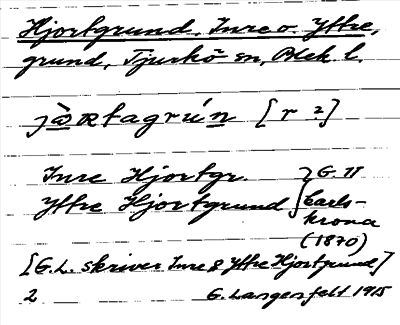 Hjortgrund, Inre o. Yttre,
grund, Tjurkö sn, Blek. l.
jòRtagrún [r ?]
Inre Hjortgr. } G. 11
Yttre Hjortgrund } Carls-
krona
(1870)
[G.L. skriver Inre & Yttre Hjortgrund]
2 G. Langenfelt 1915